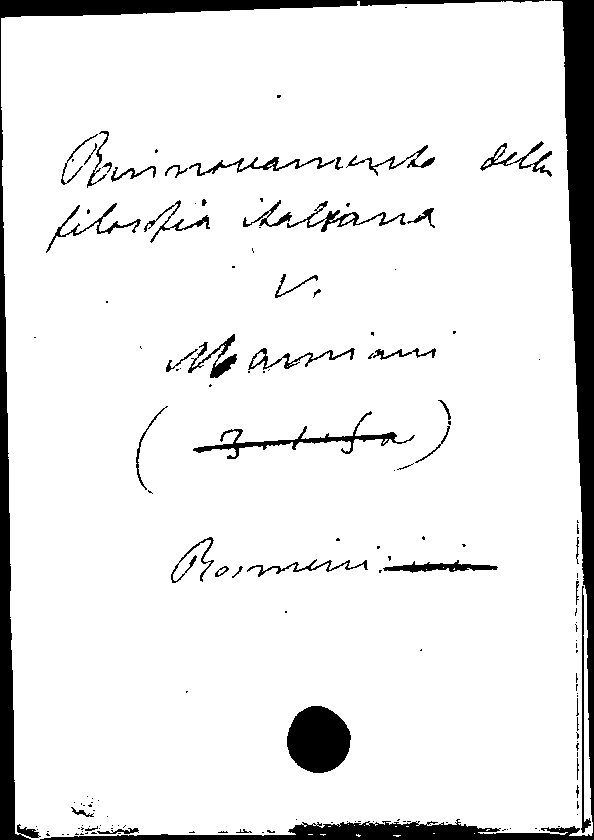 Rinnovamento della
filosofia italiana
V.
Mamiani
Rosmini